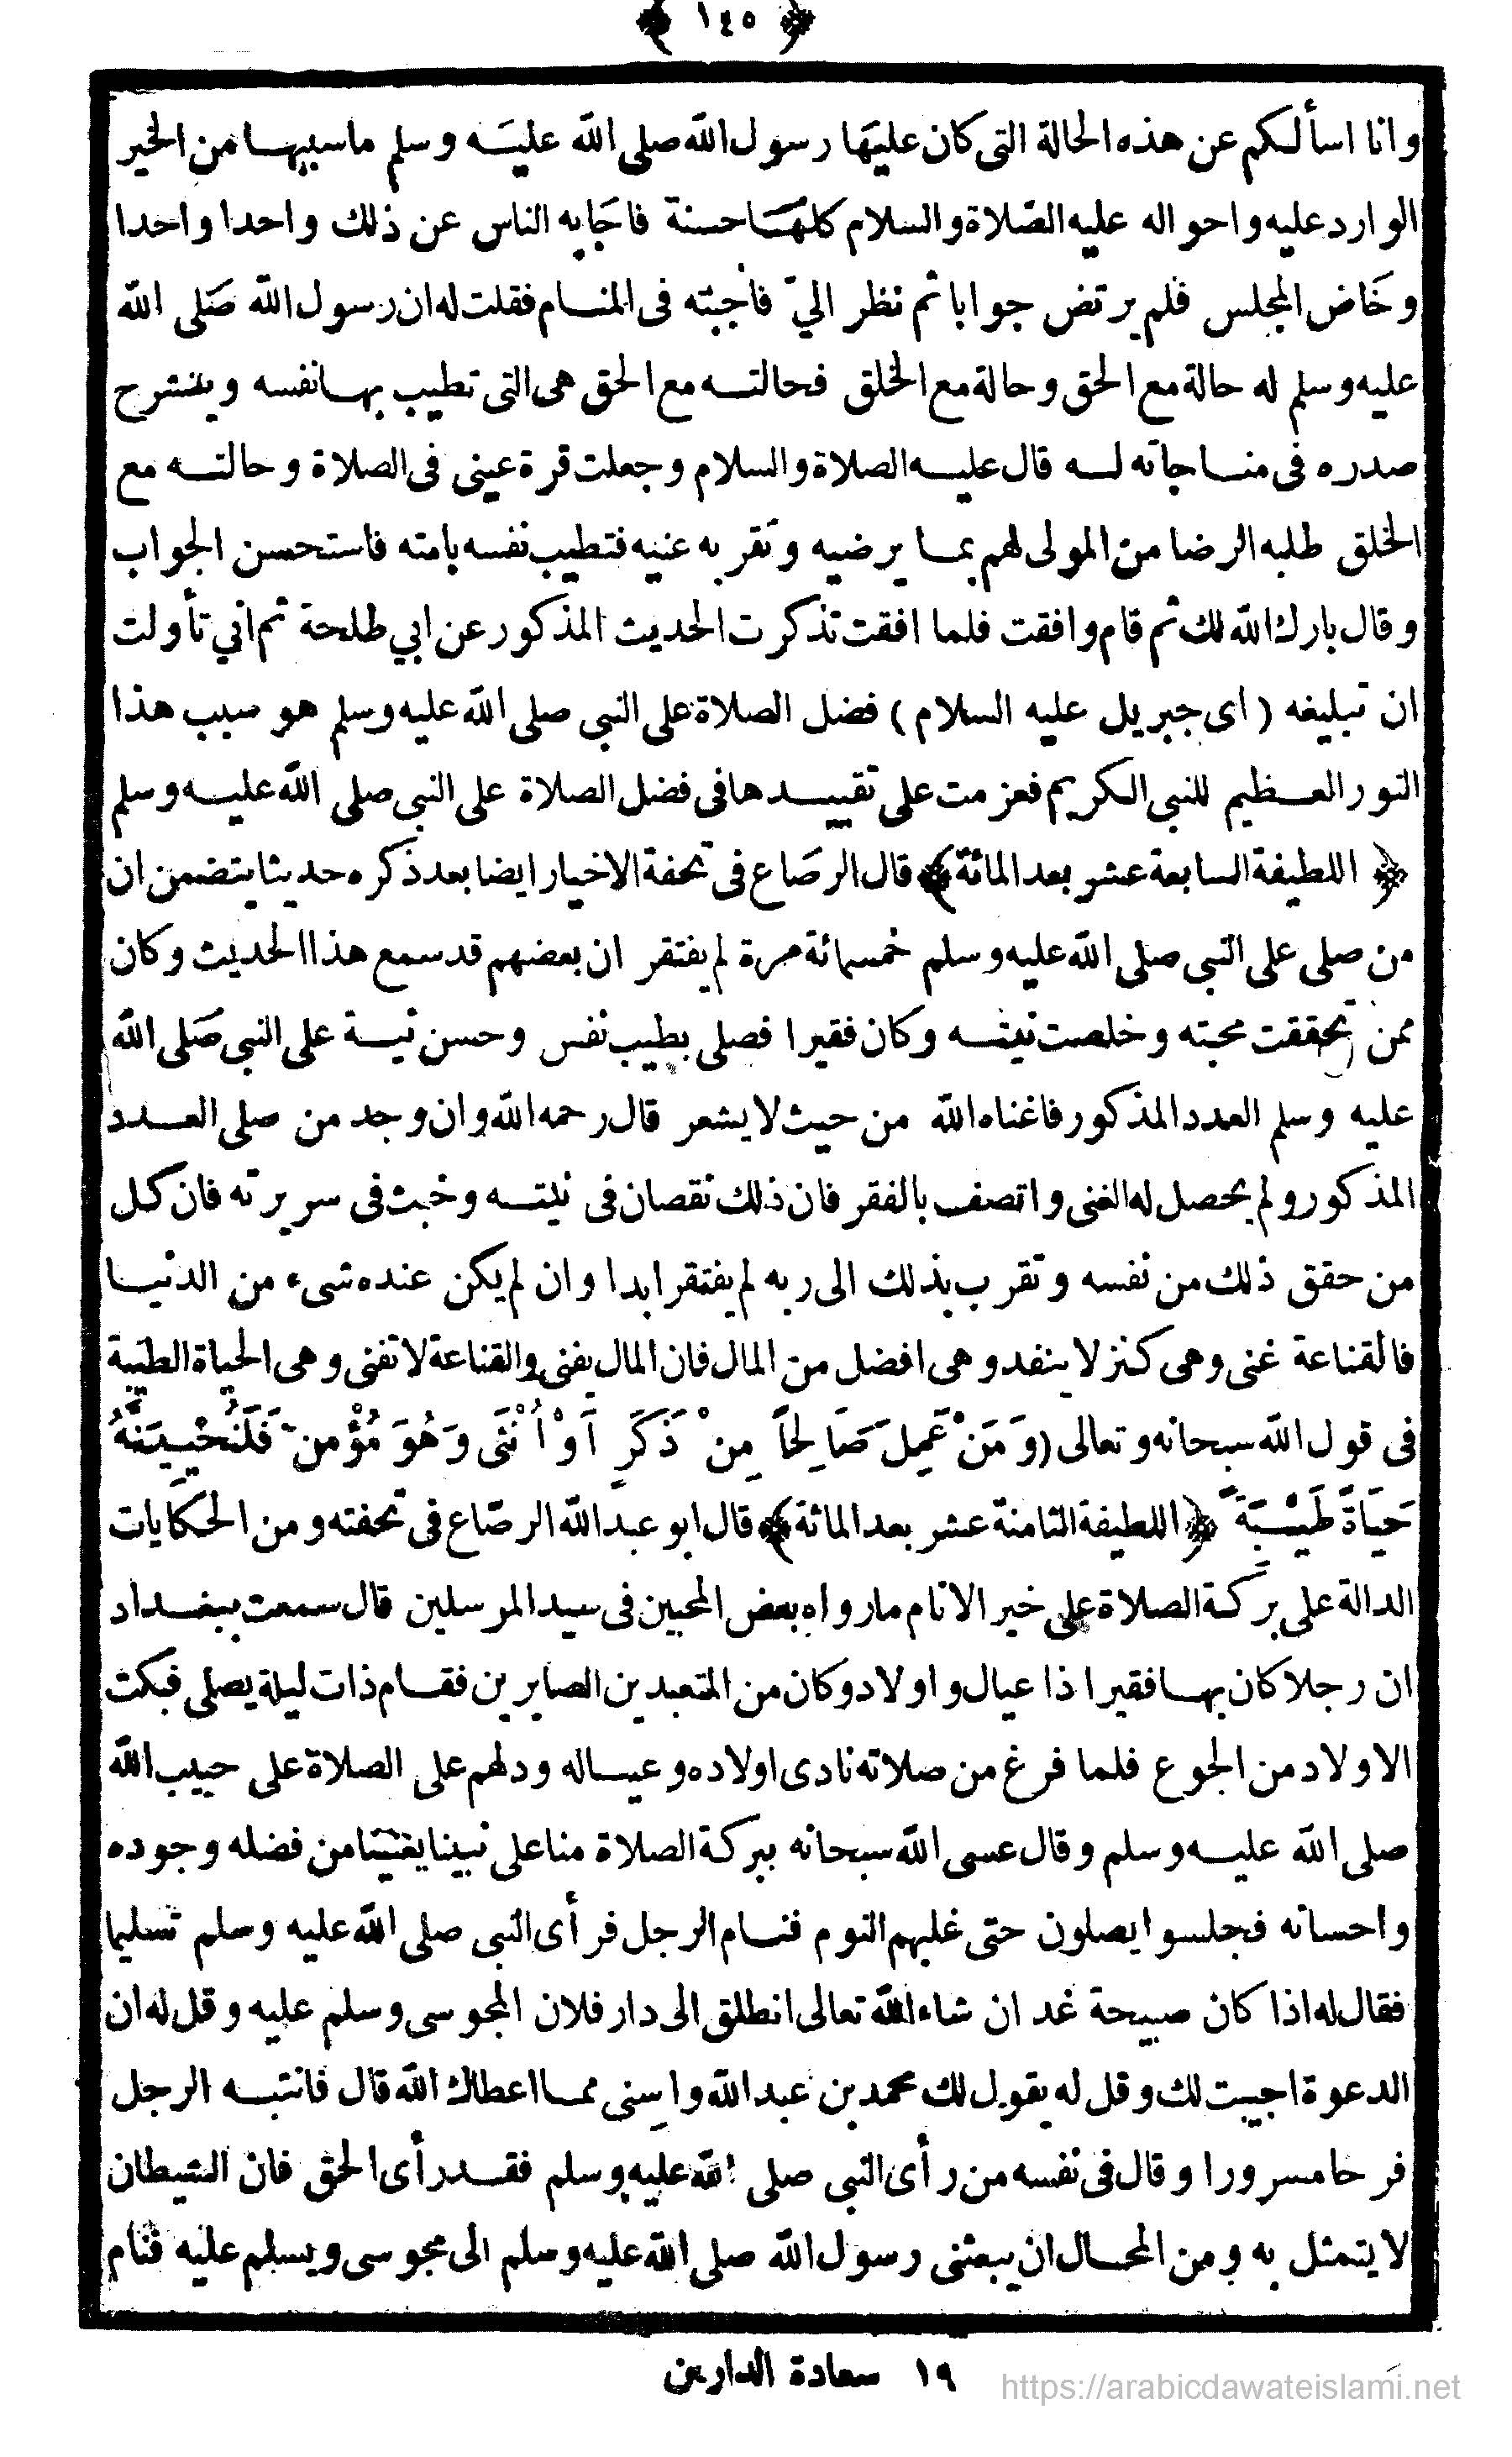 ﴿ ١٤٥ ﴾
وانا اسألكم عن هذه الحالة التى كان عليها رسول الله صلى الله عليه وسلم ماسببها من الخير
الوارد عليه واحواله عليه الصّلاة والسلام كلها حسنة فاجابه الناس عن ذلك واحدا واحدا
وخاض المجلس فلم يرتض جوابا ثم نظر اليّ فأجبته فى المنام فقلت له ان رسول الله صَلى الله
عليه وسلم له حالة مع الحق وحالة مع الخلق فحالته مع الحق هى التى تطيب بها نفسه وينشرح
صدره فى مناجاته له قال عليه الصلاة والسلام وجعلت قرة عينى فى الصلاة وحالته مع
الخلق طلبه الرضا من المولى لهم بما يرضيه وتقر به عنيه فتطيب نفسه بامته فاستحسن الجواب
وقال بارك الله لك ثم قام وافقت فلما افقت تذكرت الحديث المذكور عن ابي طلحة ثم اني تأولت
ان تبليغه (اى جبريل عليه السلام) فضل الصلاة على النبي صلى الله عليه وسلم هو سبب هذا
النور العظيم للنبي الكريم فعزمت على تقييدها فى فضل الصلاة على النبي صلى الله عليه وسلم
﴿ اللطيفة السابعة عشر بعد المائة﴾ قال الرصَاع فى تحفة الاخيار ايضا بعد ذكره حديثا يتضمن ان
من صلى على النبي صلى الله عليه وسلم خمسمائة مرة لم يفتقر ان بعضهم قد سمع هذا الحديث وكان
ممن تحققت محبته وخلصت نيته وكان فقيرا فصلى بطيب نفس وحسن نية على النبي صَلى الله
عليه وسلم العدد المذكور فاغناه الله من حيث لا يشعر قال رحمه الله وان وجد من صلى العدد
المذكور ولم يحصل له الغنى واتصف بالفقر فان ذلك نقصان فى نيته وخبث فى سريرته فان كل
من حقق ذلك من نفسه وتقرب بذلك الى ربه لم يفتقر ابدا وان لم يكن عنده شىء من الدنيا
فالقناعة غنى وهى كنز لا ينفد وهى افضل من المال فان المال يفنى والقناعة لا تفنى وهى الحياة الطيبة
فى قول الله سبحانه وتعالى (وَمَنْ عَمِلَ صَالِحًا مِنْ ذَكَرٍ أَوْ أُنْثَى وَهُوَ مُؤْمن فَلَنُحْيِيَنَّهُ
حَيَاةً طَيِّبَةً ﴿اللطيفة الثامنة عشر بعد المائة﴾ قال ابو عبد الله الرصّاع فى تحفته ومن الحكايات
الدالة على بركة الصلاة على خير الانام مارواه بعض المحبين فى سيد المرسلين قال سمعت ببغداد
ان رجلا كان بها فقيرا ذا عيال واولاد وكان من المتعبدين الصابرين فقام ذات ليلة يصلى فبكت
الاولاد من الجوع فلما فرغ من صلاته نادى اولاده وعياله ودلهم على الصلاة على حبيب الله
صلى الله عليه وسلم وقال عسى الله سبحانه ببركة الصلاة منا على نبينا يغنينا من فضله وجوده
واحسانه فجلسوا يصلون حتى غلبهم النوم فنام الرجل فرأى النبي صلى الله عليه وسلم تسليما
فقال له اذا كان صبيحة غد ان شاء الله تعالى انطلق الى دار فلان المجوسى وسلم عليه وقل له ان
الدعوة اجيبت لك وقل له يقول لك محمد بن عبد الله واسِنى مما اعطاك الله قال فانتبه الرجل
فرحا مسرورا وقال فى نفسه من رأى النبي صلى الله عليه وسلم فقد رأى الحق فان الشيطان
لا يتمثل به ومن المحال ان يبعثنى رسول الله صلى الله عليه وسلم الى مجوسى ويسلم عليه فنام
١٩ سعادة الدارين
https://arabicdawateislami.net